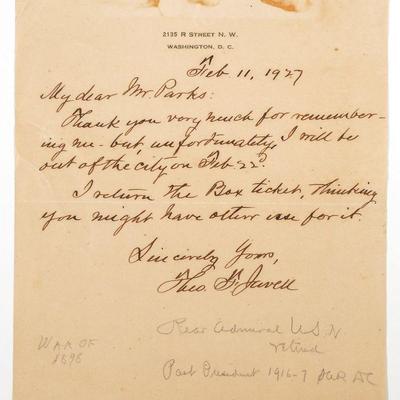 2135 R STREET N. W.
WASHINGTON, D. C.
Feb 11, 1927
My dear Mr. Parks:
Thank you very much for remember-
ing me - but, unfortunately, I will be
out of the city on Feb. 22d.
I return the Box ticket, thinking
you might have other use for it.
Sincerely Yours,
Theo. F. Jewell
Rear Admiral U.S.N.
retired
WAR OF
1898
Past President 1916-7 SAR DC